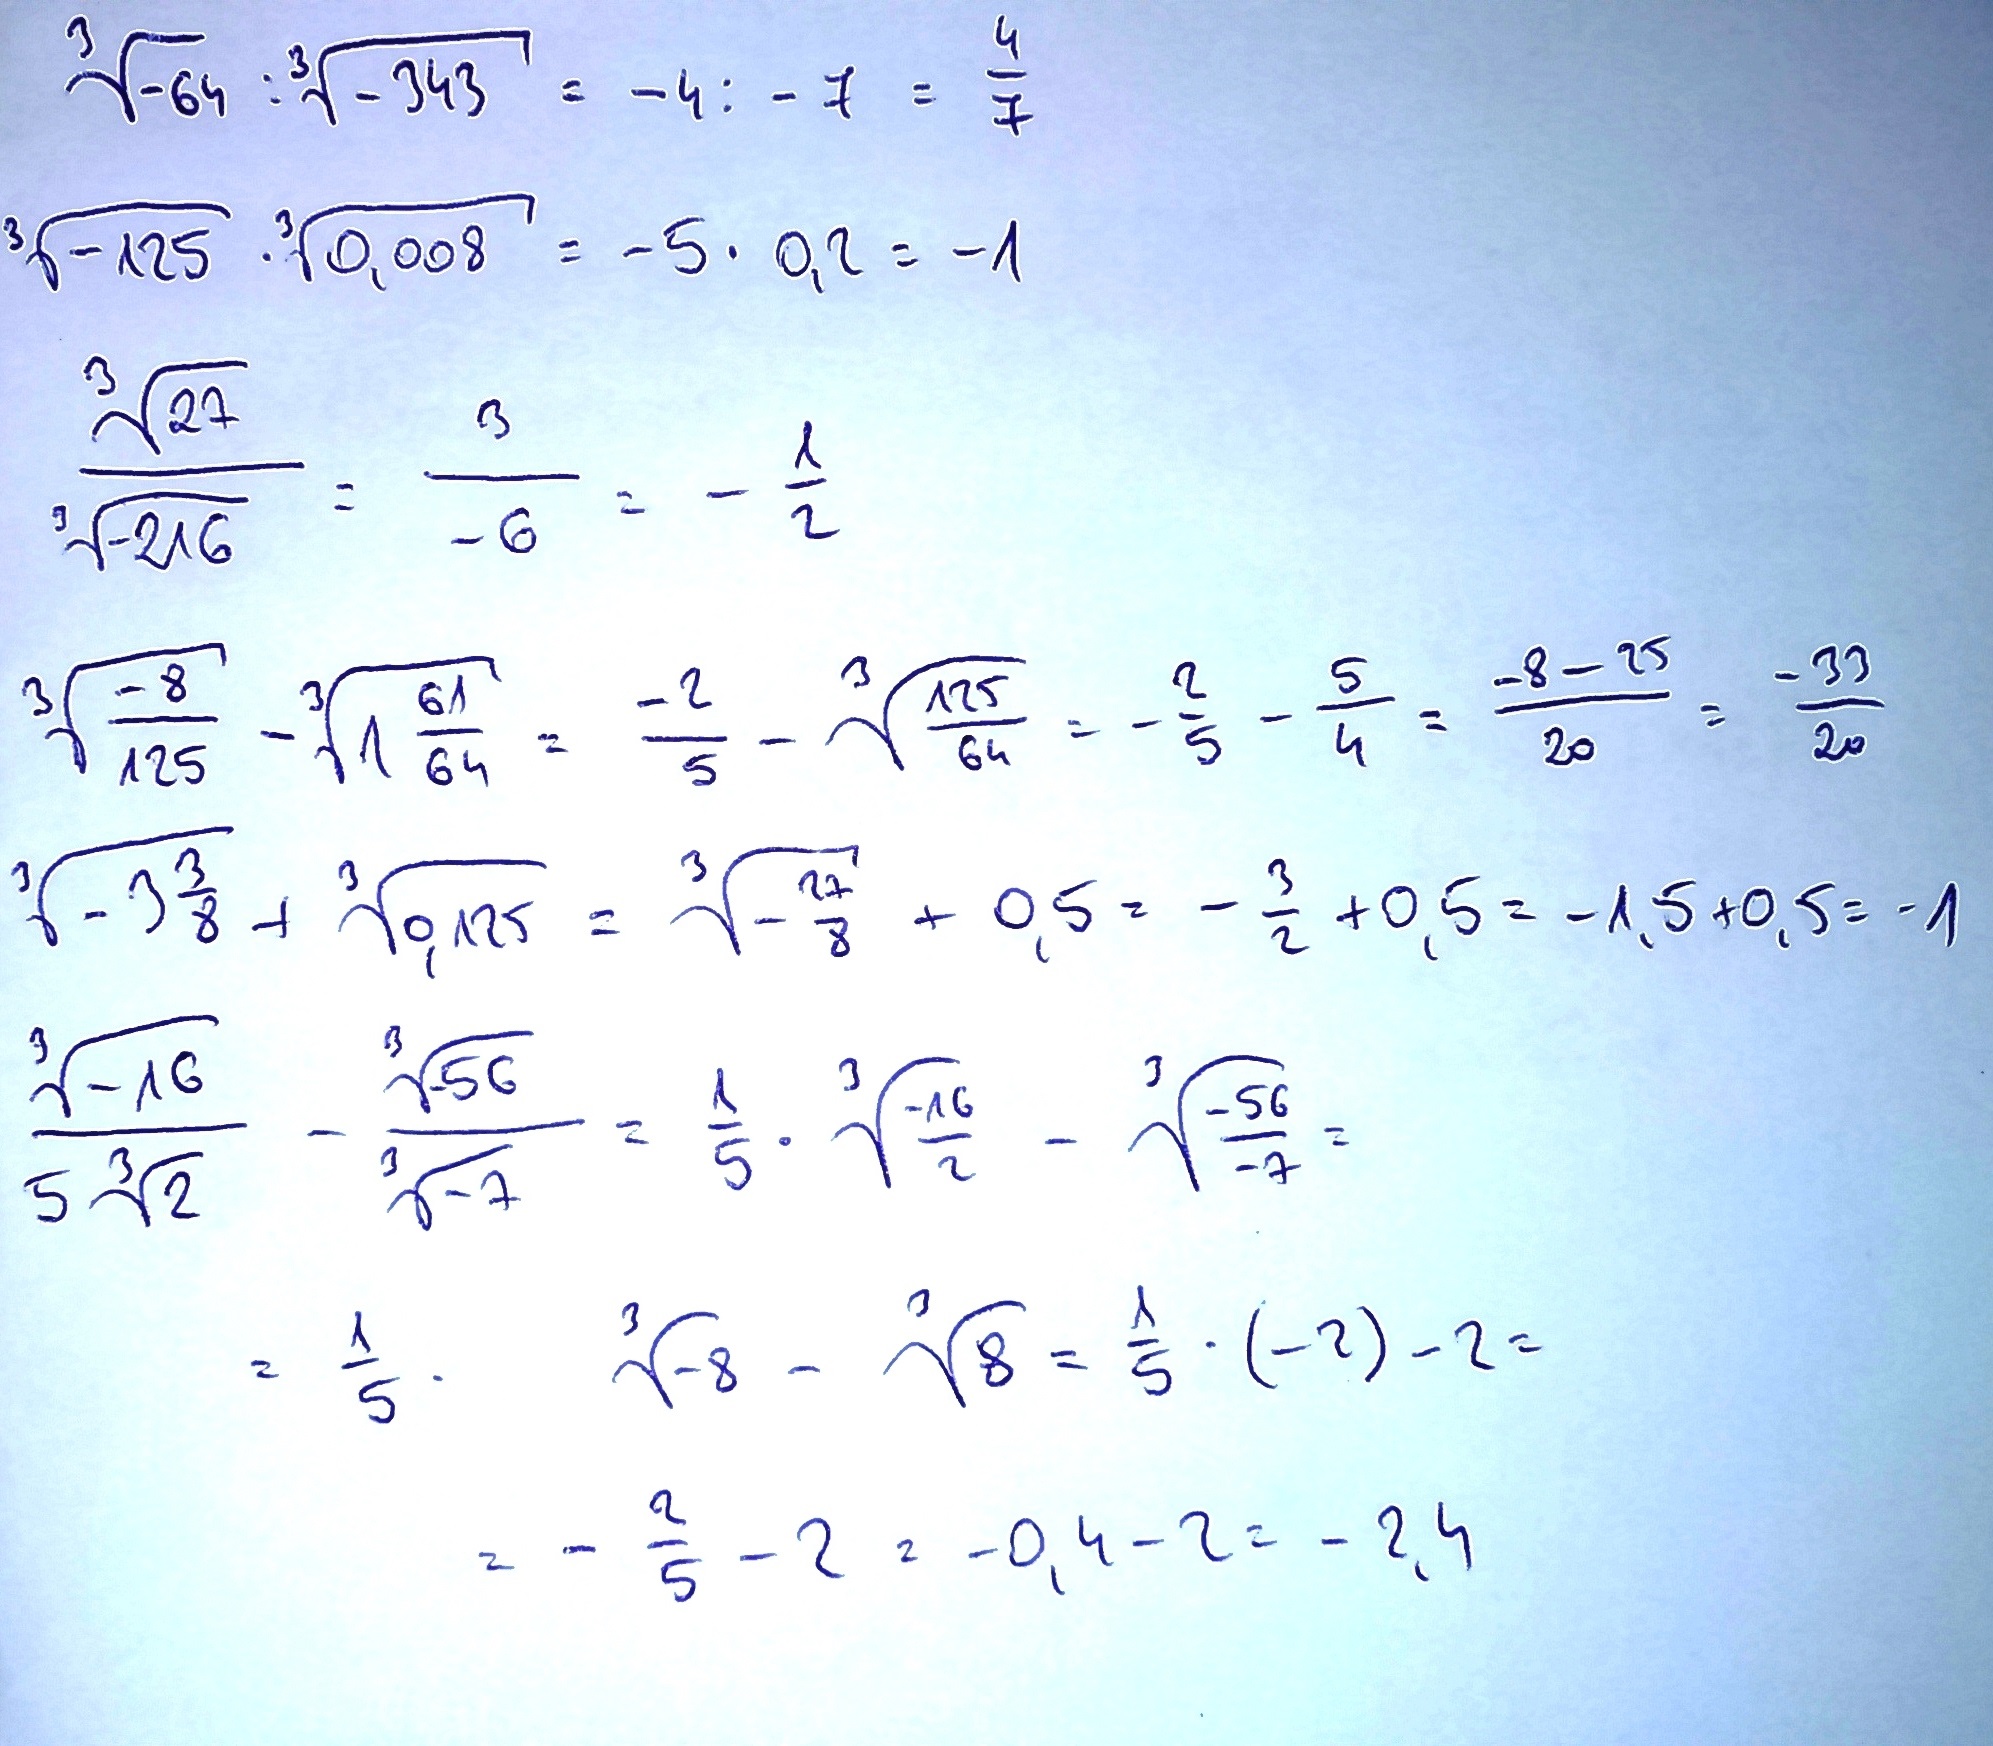 ∛-64 : ∛-343 = -4 : -7 = 4/7
∛-125 · ∛0,008 = -5 · 0,2 = -1
∛27/∛-216 = 3/-6 = - 1/2
∛(-8/125) - ∛(1 61/64) = -2/5 - ∛(125/64) = - 2/5 - 5/4 = (-8-25)/20 = -33/20
∛(-3 3/8) + ∛0,125 = ∛(-27/8) + 0,5 = - 3/2 + 0,5 = -1,5 + 0,5 = -1
∛-16/(5∛2) - ∛-56/∛-7 = 1/5 · ∛(-16/2) - ∛(-56/-7) =
= 1/5 · ∛-8 - ∛8 = 1/5 · (-2) - 2 =
= - 2/5 - 2 = -0,4 - 2 = -2,4